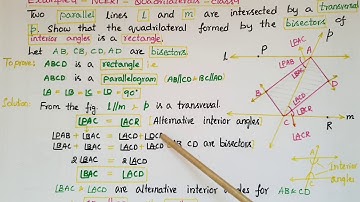 Two parallel lines l and m are intersected by a transversal
p. Show that the quadrilateral formed by the bisectors of
interior angles is a rectangle.
Let AB, CB, CD, AD are bisectors
To prove: ABCD is a rectangle
ABCD is a parallelogram (AB//CD & BC//AD)
∠A = ∠B = ∠C = ∠D =
Solution: From the fig. l//m, p is a transversal
∠PAC = ∠ACR [Alternative interior angles]
∠PAB + ∠BAC = ∠ACD + ∠DCR
∠BAC + ∠BAC = ∠ACD + ∠ACD CD are bisectors]
2∠BAC = 2∠ACD
∠BAC = ∠ACD
∠BAC & ∠ACD are alternative interior angles for AB & CD
P
A
B
D
C
R
m